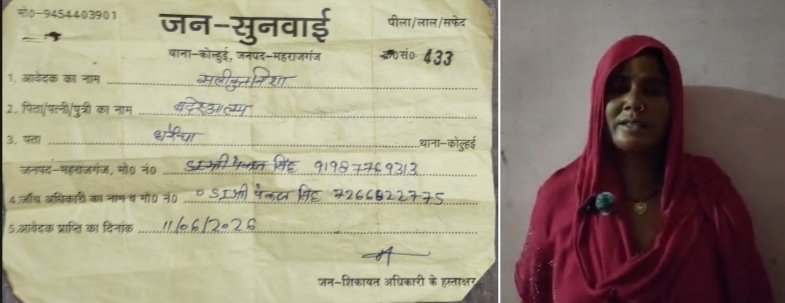 मो0-9454403901
जन-सुनवाई
पीला/लाल/सफेद
थाना-कोल्हुई, जनपद-महराजगंज
क्र0सं0 433
1. आवेदक का नाम
2. पिता/पत्नी/पुत्री का नाम
3. पता धरैचा थाना-कोल्हुई
जनपद-महराजगंज, मो0 नं0 91987769313
4.जाँच अधिकारी का नाम व मो0 नं0 SI श्री पंकज सिंह 7266822775
5.आवेदक प्राप्ति का दिनांक 11/06/2026
जन-शिकायत अधिकारी के हस्ताक्षर